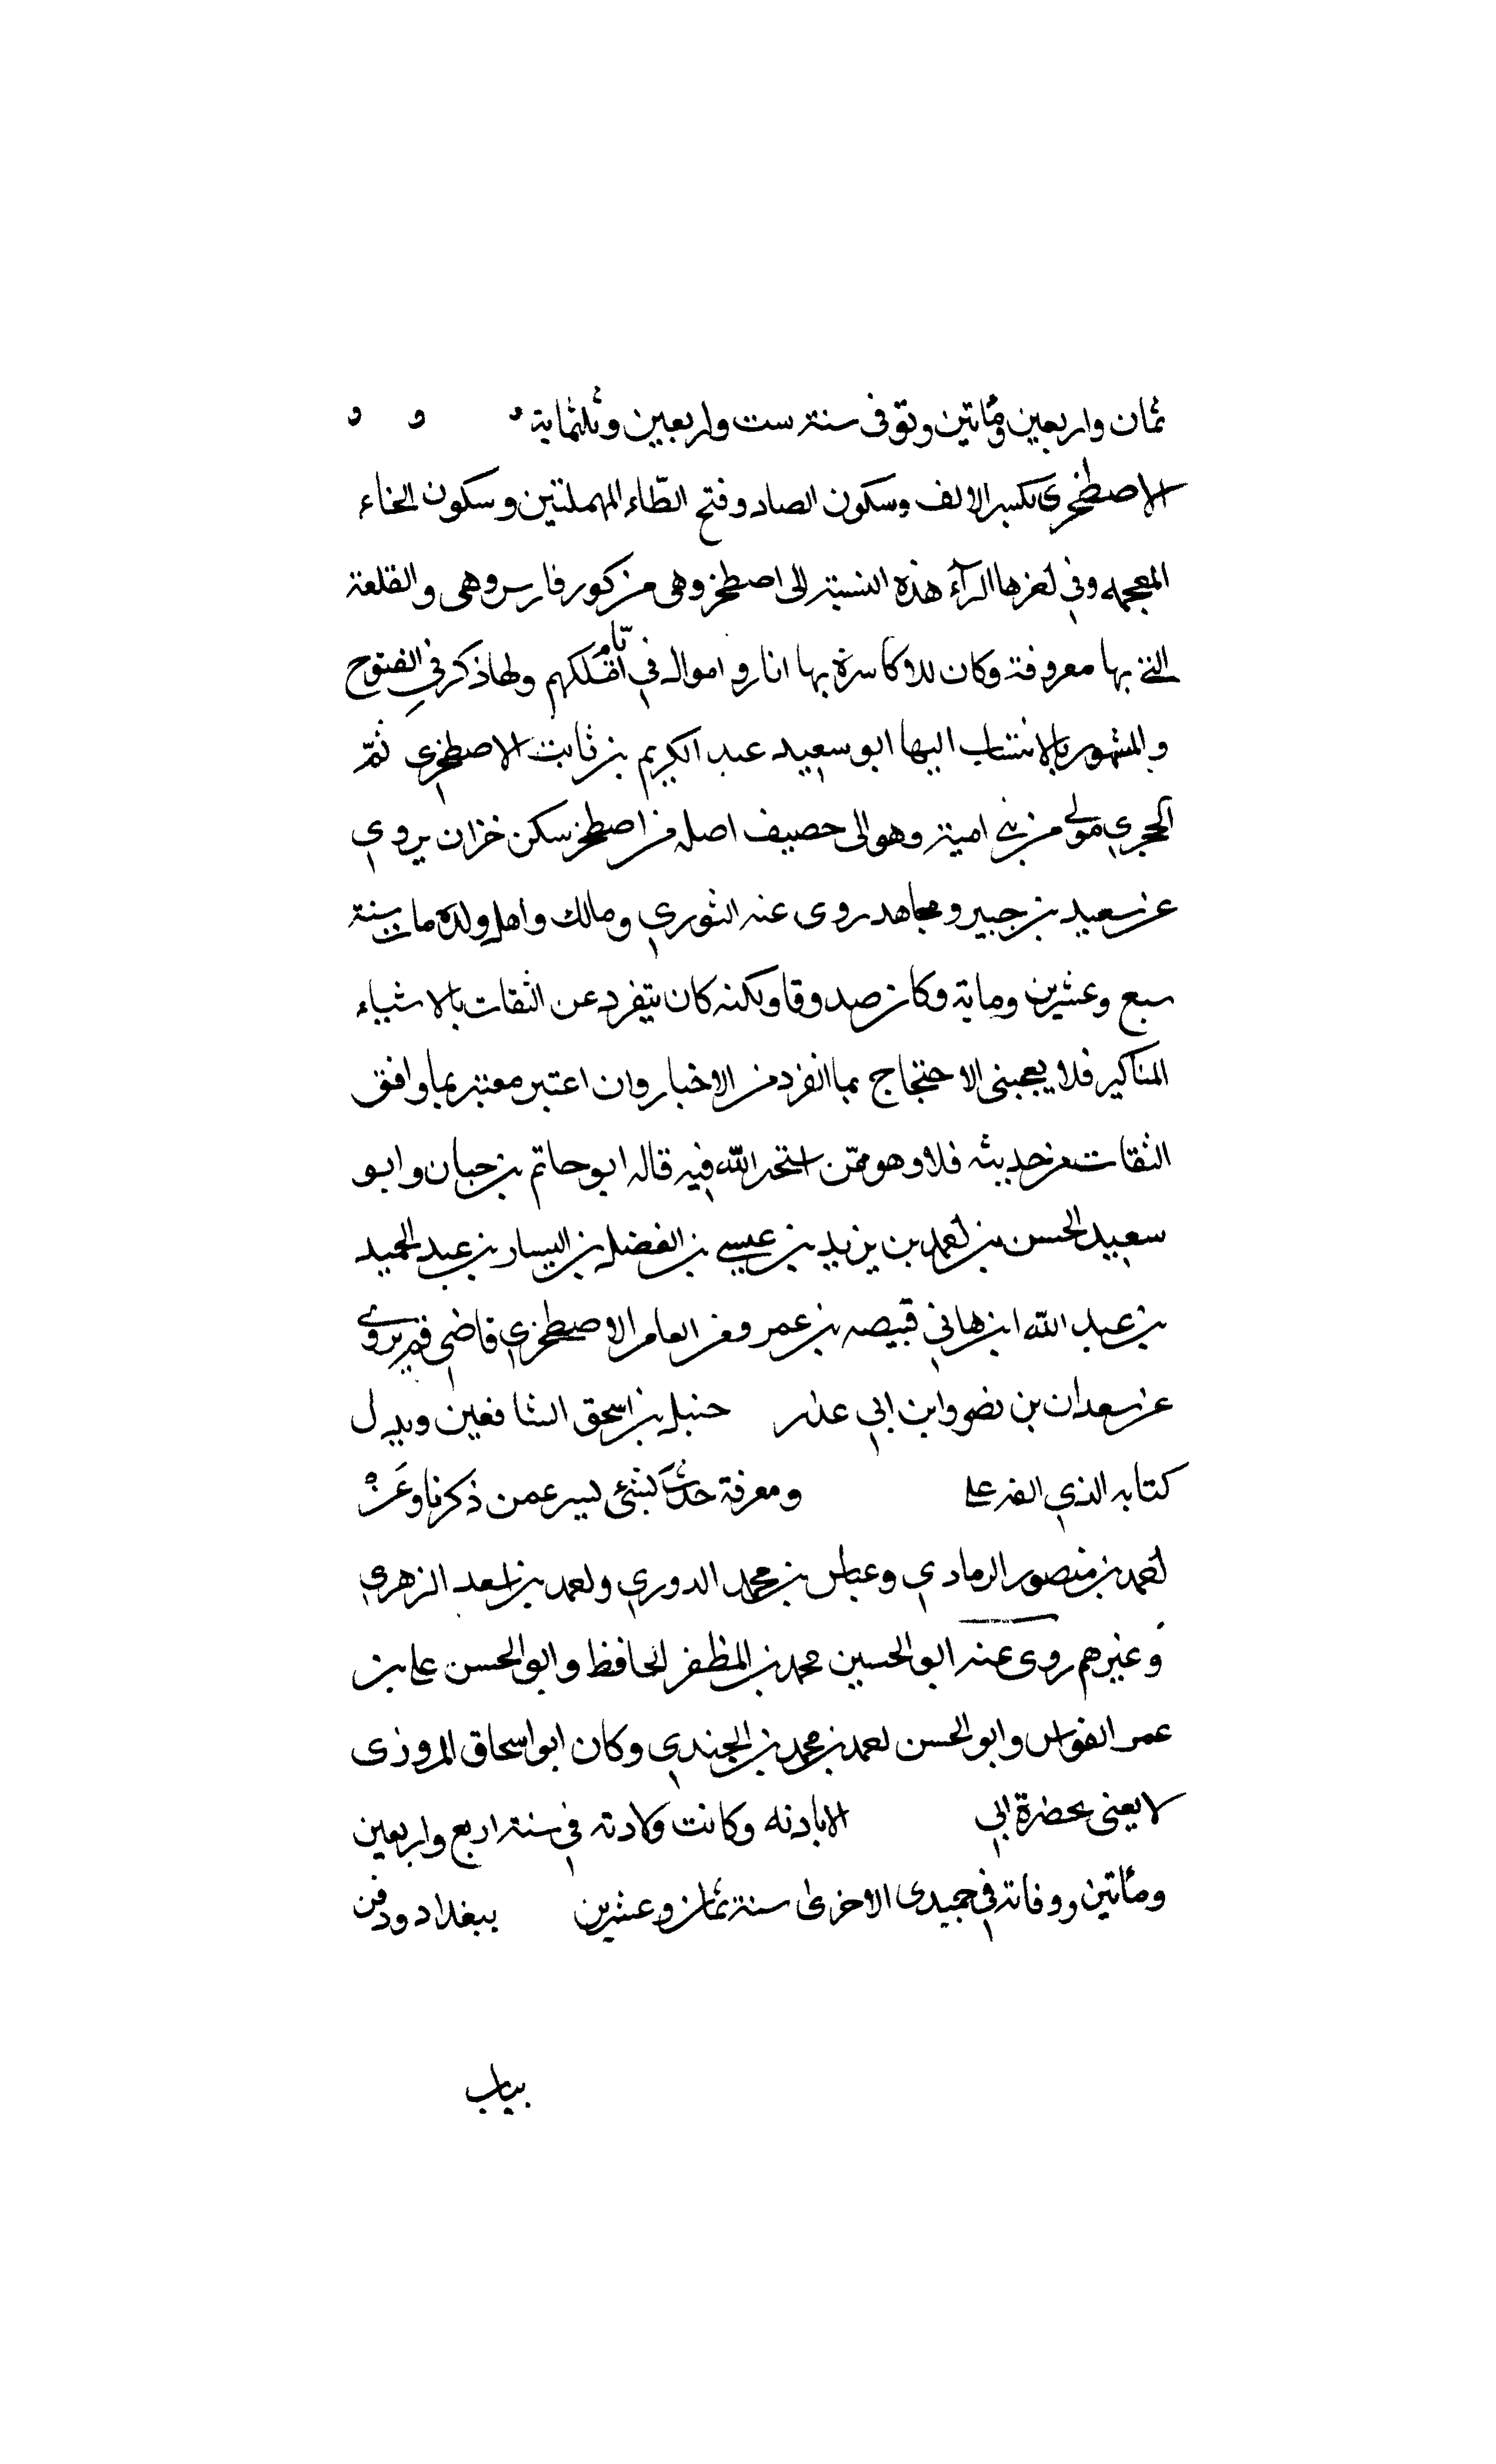 ثمان واربعين ومأتين وتوفى سنة ست واربعين وثلثماية
الاصطخرى بكسر الالف وسكون الصاد وفتح الطّاء المهملتين وسكون الخاء
المعجمه وفي اخرها الرآء هذه النسبة الى اصطخر وهى من كور فارس وهى والقلعة
التي بها معروفة وكان للاكاسرة بها اثار واموال في ايّام ملكهم ولها ذكر في الفتوح
والمشهور بالانتساب اليها ابو سعيد عبد الكريم بن ثابت الاصطخرى ثمّ
الحجري مولى من بني امية وهو الى حصيف اصله من اصطخر سكن خزان يروي
عن سعيد بن جبير ومجاهد روى عنه الثوري ومالك واهل ولده مات سنة
سبع وعشرين وماية وكان صدوقا ولكنه كان يتفرد عن الثقات بالاشياء
المناكير فلا يعجبنى الاحتجاج بما انفرد من الاخبار وان اعتبر معتبر بما وافق
الثقات من حديثه فلا وهو ممّن استخر الله فيه قاله ابو حاتم بن حبان وابو
سعيد الحسن بن احمد بن يزيد بن عيسى بن الفضل بن اليسار بن عبد الحميد
بن عبد الله ابن هاني قبيصه بن عمرو من العامر الاصطخري قاضى قم يروي
عن سعدان بن نصر وابن ابي حنبل بن اسحق الشافعين ويدل
كتابه الذي الفه على ومعرفة حدّث بشئ يسير عمن ذكرنا وعن
احمد بن منصور الرمادي وعباس بن محمد الدوري واحمد بن اسعد الزهري
وغيرهم روى عنه ابو الحسين محمد بن المظفر الحافظ وابو الحسن على بن
عمر القواس وابو الحسن احمد بن محمد بن الجندي وكان ابو اسحاق المروزى
لا يعنى بحضرة ابي الا باذنه وكانت ولادته في سنة اربع واربعين
ومأتين ووفاته في جميدى الاخرى سنة ثمان وعشرين ببغداد ودفن
بباب